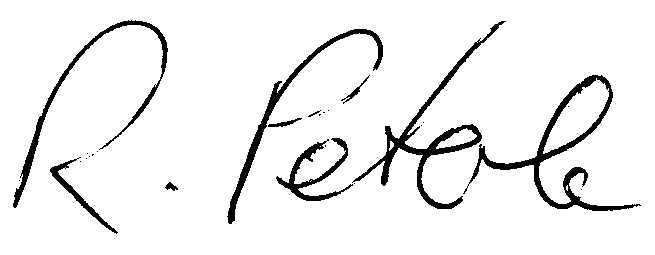 R. Petole